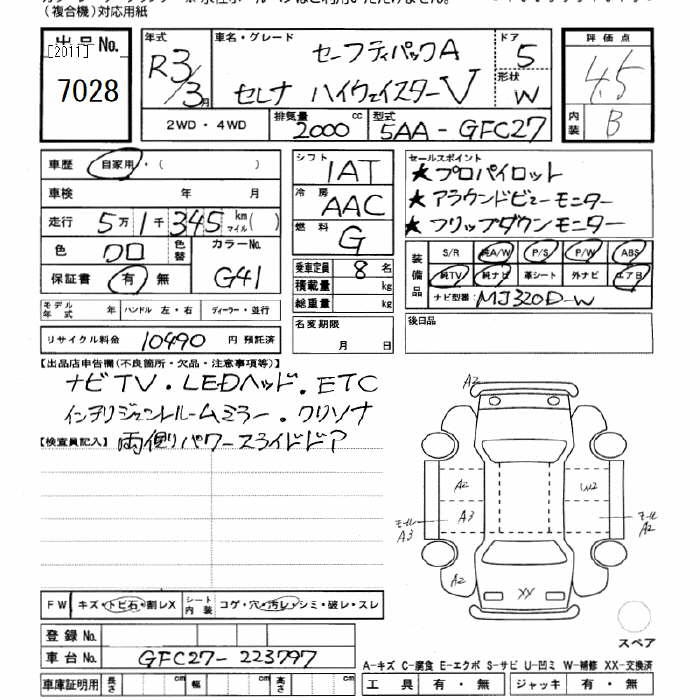 (複合機)対応用紙
出品No.
[2011]
7028
年式
R3/3月
車名・グレード
セーフティパックA
セレナ ハイウェイスターV
ドア
5
形状
W
評価点
4.5
内装
B
2WD・4WD
排気量
2000 cc
型式
5AA-GFC27
車歴 自家用・( )
車検 年 月
走行 5万1千345 km マイル( )
色 クロ
色替
カラーNo.
G41
保証書 有・無
モデル年式 年 ハンドル 左・右 ディーラー・並行
リサイクル料金 10490 円 預託済
シフト
IAT
冷房
AAC
燃料
G
乗車定員 8 名
積載量 kg
総重量 kg
名変期限
月 日
セールスポイント
★プロパイロット
★アラウンドビューモニター
★フリップダウンモニター
装備品
S/R 純A/W P/S P/W ABS
純TV 純ナビ 革シート 外ナビ エアB
ナビ型番: MJ320D-W
後日品
【出品店申告欄(不良箇所・欠品・注意事項等)】
ナビTV・LEDヘッド・ETC
インテリジェントルームミラー・クリソナ
両側パワースライドドア
【検査員記入】
A2
A2
W2
A3
モール A3
モール A2
A2
XX
スペア
FW キズ・トビ石・割レX シート内装 コゲ・穴・汚レ・シミ・破レ・スレ
登録No.
車台No. GFC27-223797
車庫証明用 長さ cm 幅 cm 高さ cm
A-キズ C-腐食 E-エクボ S-サビ U-凹ミ W-補修 XX-交換済
工具 有・無 ジャッキ 有・無